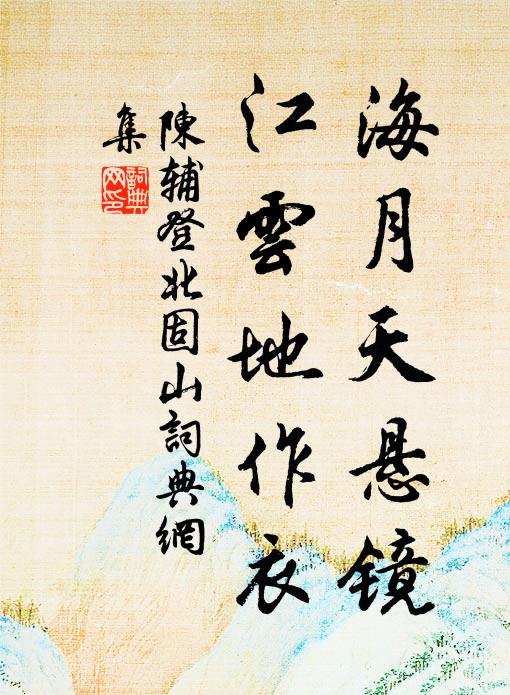 海月天悬镜
江雲地作衣
陳辅登北固山詞典網
集
詞典
网印